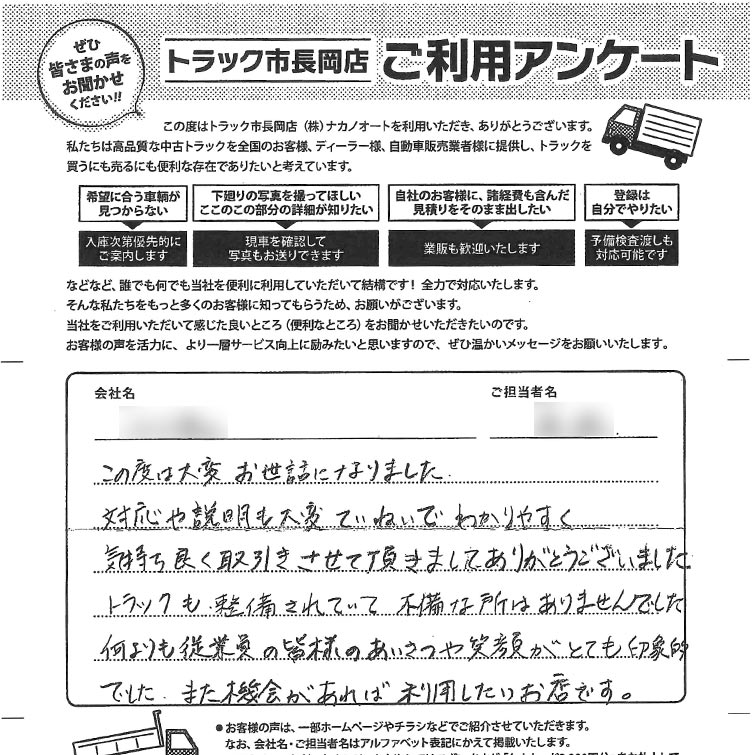 ぜひ
皆さまの声を
お聞かせ
ください!!
トラック市長岡店 ご利用アンケート
この度はトラック市長岡店(株)ナカノオートを利用いただき、ありがとうございます。
私たちは高品質な中古トラックを全国のお客様、ディーラー様、自動車販売業者様に提供し、トラックを
買うにも売るにも便利な存在でありたいと考えています。
希望に合う車輌が
見つからない
入庫次第優先的に
ご案内します
下廻りの写真を撮ってほしい
ここのこの部分の詳細が知りたい
現車を確認して
写真もお送りできます
自社のお客様に、諸経費も含んだ
見積りをそのまま出したい
業販も歓迎いたします
登録は
自分でやりたい
予備検査渡しも
対応可能です
などなど、誰でも何でも当社を便利に利用していただいて結構です!全力で対応いたします。
そんな私たちをもっと多くのお客様に知ってもらうため、お願いがございます。
当社をご利用いただいて感じた良いところ(便利なところ)をお聞かせいただきたいのです。
お客様の声を活力に、より一層サービス向上に励みたいと思いますので、ぜひ温かいメッセージをお願いいたします。
会社名 ご担当者名
この度は大変お世話になりました
対応や説明も大変ていねいでわかりやすく
気持ち良く取引きさせて頂きましてありがとうございました。
トラックも整備されていて不備な所はありませんでした
何よりも従業員の皆様のあいさつや笑顔がとても印象的
でした。また機会があれば利用したいお店です。
●お客様の声は、一部ホームページやチラシなどでご紹介させていただきます。
なお、会社名・ご担当者名はアルファベット表記にかえて掲載いたします。